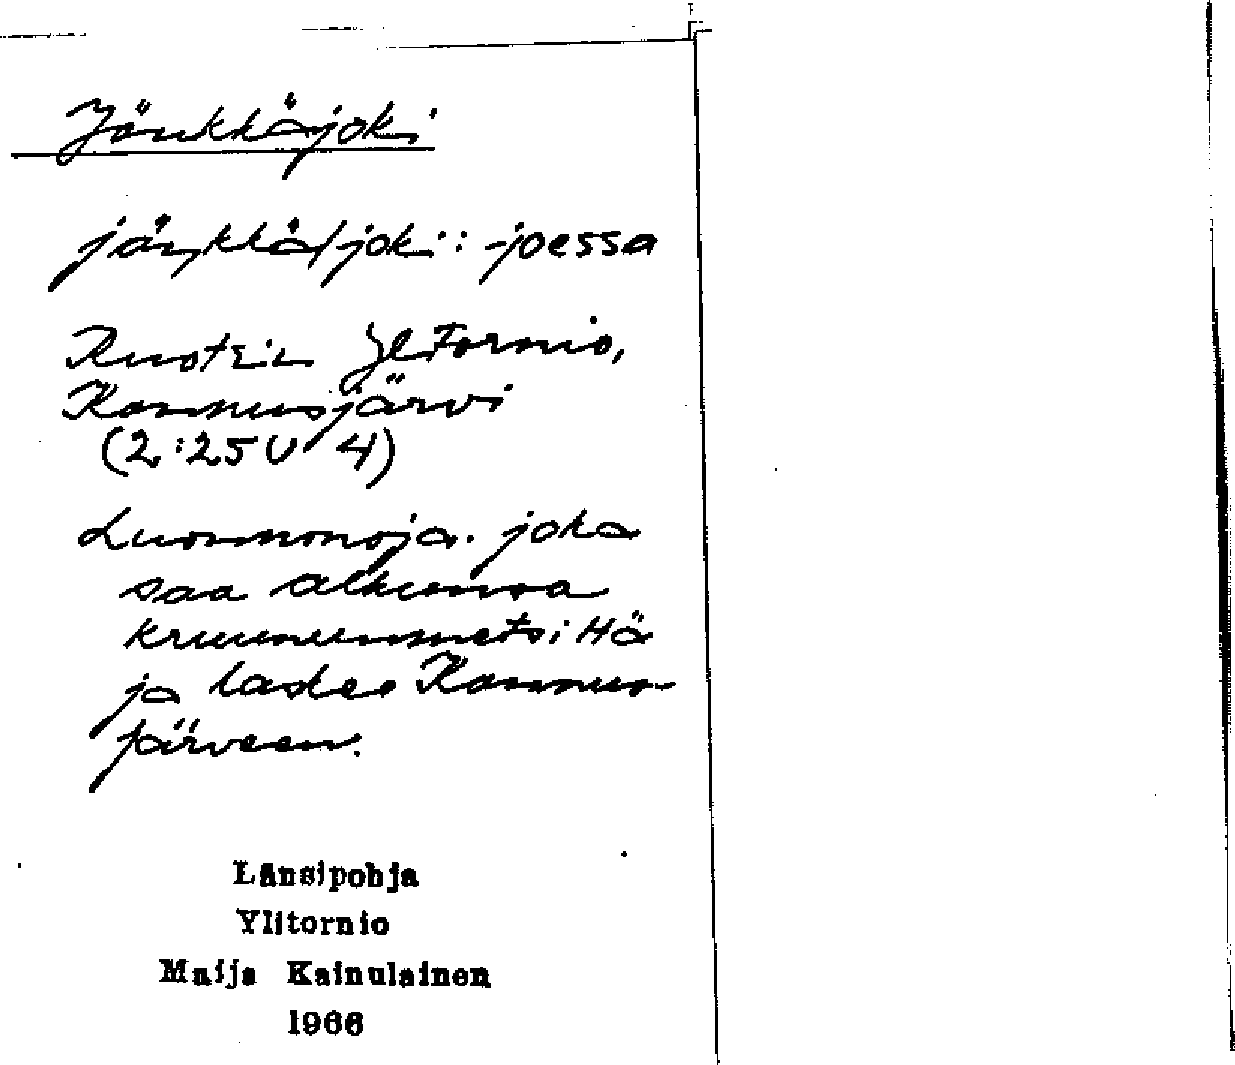 Jänkkäjoki
jäŋkkä/joki: -joessa
Ruotsin Ylitornio,
Konnusjärvi
(2:25 U 4)
Luonnonoja. joka
saa alkunsa
kruununmetsiltä
ja laskee Konnus-
järveen.
Länsipohja
Ylitornio
Maija Kainulainen
1966